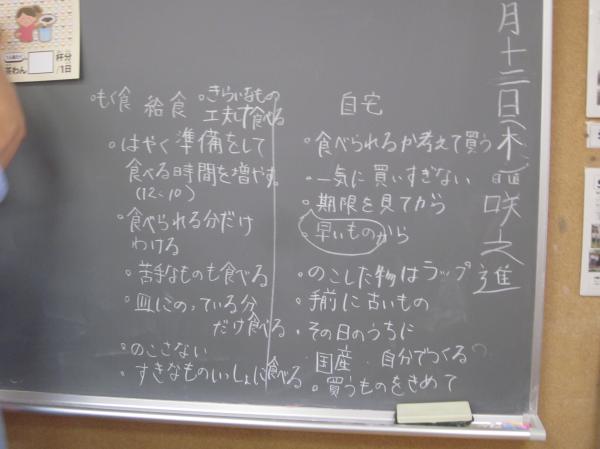 月十二日(木)
咲之進
杯分
茶わん
/1日
・もく食 給食 ・きらいなもの
工夫して食べる
・はやく準備をして
食べる時間を増やす。
(12、10)
・食べられる分だけ
わける
・苦手なものも食べる
・皿にのっている分
だけ食べる
・のこさない
・すきなものいっしょに食べる
自宅
・食べられるか考えて買う
・一気に買いすぎない
・期限を見てから
・早いものから
・のこした物はラップ
・手前に古いもの
・その日のうちに
国産 ・自分でつくる
・買うものをきめて